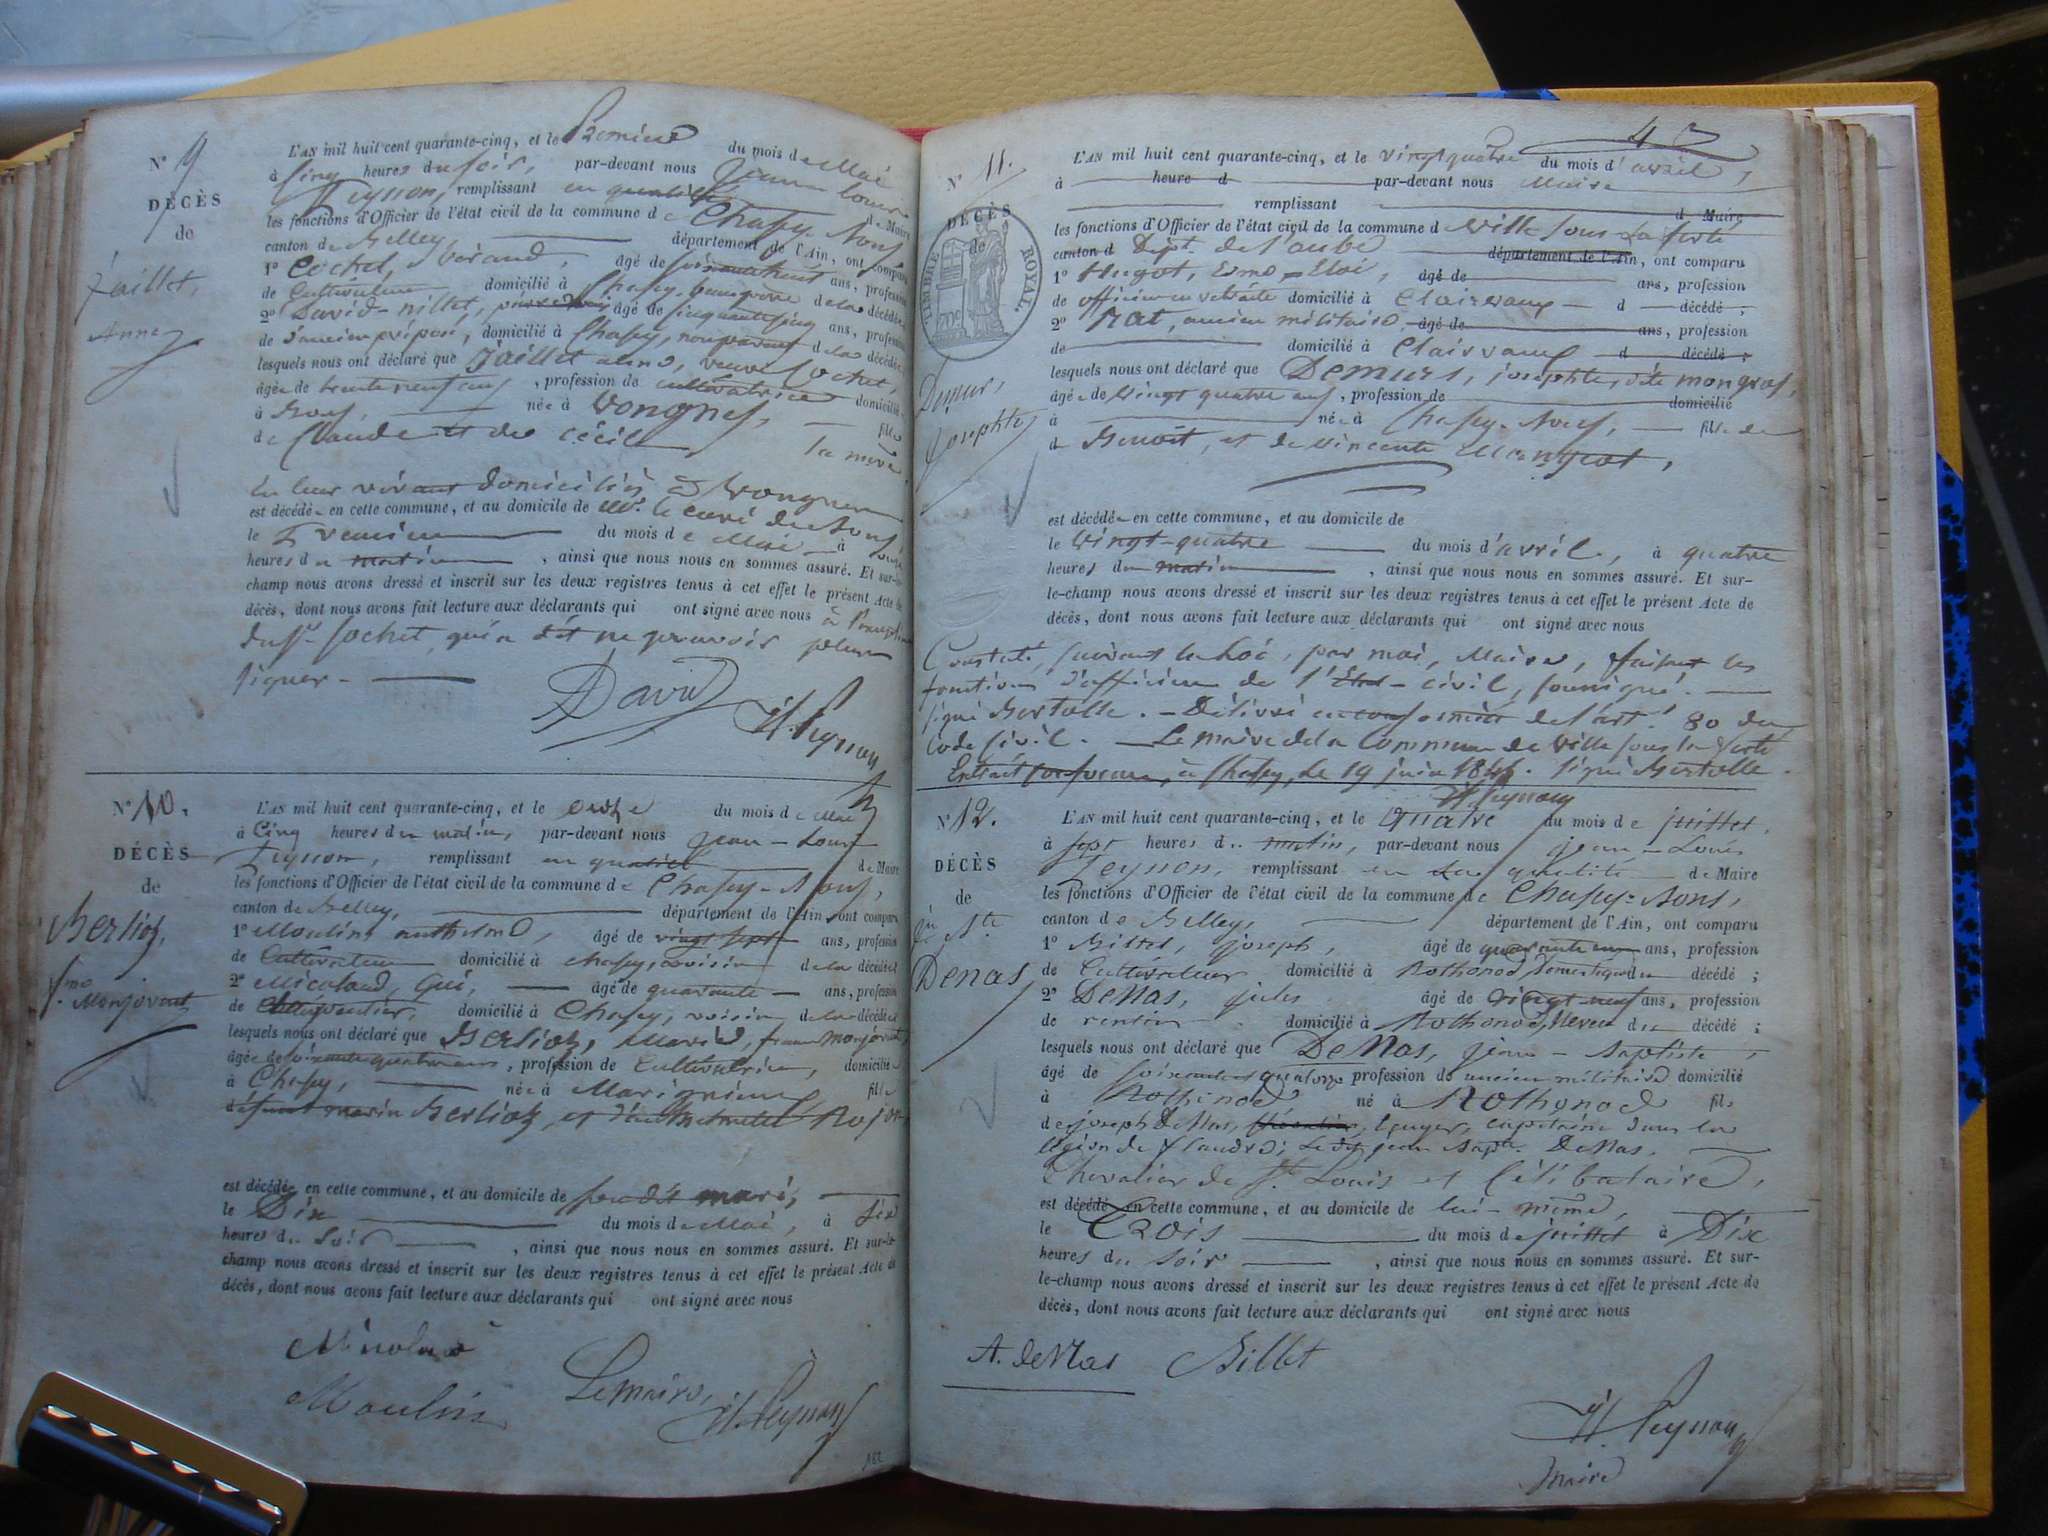 N° 9
DÉCÈS
de
Jaillet,
Anne
L'AN mil huit cent quarante-cinq, et le Premier du mois de Mai
à Cinq heures du soir, par-devant nous Jean Louis
Peysson, remplissant en qualité de Maire
les fonctions d'Officier de l'état civil de la commune de Chasey-Bons
canton de Belley, département de l'Ain, ont comparu
1° Cochet, âgé de ans, profession
de Cultivateur domicilié à Chasey-Bons, de la décédée
2° David- âgé de cinquante cinq ans, profession
de d'ancien préposé, domicilié à Chasey, de la décédée
lesquels nous ont déclaré que Jaillet anne, veuve Cochet,
âgée de trente neuf ans, profession de cultivatrice domiciliée
à Bons, née à Vongnes, fille
de Claude et de Cécile la mère
domiciliés à Vongnes
est décédée en cette commune, et au domicile de Mr. le curé de Bons,
le Premier du mois de Mai à
heures du matin, ainsi que nous nous en sommes assuré. Et sur-le-
champ nous avons dressé et inscrit sur les deux registres tenus à cet effet le présent Acte de
décès, dont nous avons fait lecture aux déclarants qui ont signé avec nous à l'exception
du sr. Cochet, qui a dit ne pouvoir plus
signer.
David
N° 10.
DÉCÈS
de
Berlioz,
fme Monjovent
L'AN mil huit cent quarante-cinq, et le onze du mois de Mai
à Cinq heures du matin, par-devant nous Jean-Louis
Peysson, remplissant en qualité de Maire
les fonctions d'Officier de l'état civil de la commune de Chasey-Bons,
canton de Belley, département de l'Ain, ont comparu
1° Moulin anthelme, âgé de vingt sept ans, profession
de Cultivateur domicilié à Chasey, voisin de la décédée
2° Micoland, Gui, âgé de quarante ans, profession
de domicilié à Chasey, voisin de la décédée
lesquels nous ont déclaré que Berlioz, Marie, femme Monjovent
âgée de soixante quatre ans, profession de Cultivatrice, domiciliée
à Chasey, née à Marignieu fille
défunt marin Berlioz, et d'
est décédée en cette commune, et au domicile de son dit mari,
le Dix du mois de Mai, à six
heures du soir, ainsi que nous nous en sommes assuré. Et sur-le-
champ nous avons dressé et inscrit sur les deux registres tenus à cet effet le présent Acte de
décès, dont nous avons fait lecture aux déclarants qui ont signé avec nous
Micoland
Moulin
Le maire,
182
4
N° 11.
DÉCÈS
de
TIMBRE ROYAL.
70c
Demur,
Josephte
L'AN mil huit cent quarante-cinq, et le vingt quatre du mois d'avril,
à heure d par-devant nous Maire
remplissant d Maire
les fonctions d'Officier de l'état civil de la commune d Ville sous La ferté
canton d Dépt. de l'aube département de l'Ain, ont comparu
1° Hugot, Esme-Eloi, âgé de ans, profession
de officier en retraite domicilié à Clairvaux d décédé ;
2° Rat, ancien militaire, âgé de ans, profession
de domicilié à Clairvaux d décédé ;
lesquels nous ont déclaré que Demurs, josephte, dite mongros,
âgée de Vingt quatre ans, profession de domicilié
à née à Chasey-Bons, fille de
d Benoit, et de Vincente
est décédée en cette commune, et au domicile de
le Vingt-quatre du mois d'avril, à quatre
heures du matin, ainsi que nous nous en sommes assuré. Et sur-
le-champ nous avons dressé et inscrit sur les deux registres tenus à cet effet le présent Acte de
décès, dont nous avons fait lecture aux déclarants qui ont signé avec nous
Constaté, suivant la Loi, par moi, Maire, faisant les
fonctions d'officier de l'Etat-civil, soussigné.
signé Bertolle. - Délivré en conformité de l'art. 80 du
Code Civil. - Le maire de la Commune de Ville sous la ferté
Extrait à Chasey, le 19 juin 1845. signé Bertolle.
N° 12.
DÉCÈS
de
Jn Bte
DeMas
L'AN mil huit cent quarante-cinq, et le Quatre du mois de juillet,
à sept heures du matin, par-devant nous jean-Louis
Peysson, remplissant en sa qualité de Maire
les fonctions d'Officier de l'état civil de la commune de Chasey-Bons,
canton de Belley, département de l'Ain, ont comparu
1° Billet, joseph, âgé de quarante ans, profession
de Cultivateur domicilié à Rothonod, domestique du décédé ;
2° DeMas, jules âgé de vingt-neuf ans, profession
de rentier domicilié à Rothonod, Neveu du décédé ;
lesquels nous ont déclaré que DeMas, jean-Baptiste,
âgé de soixante et quatorze profession de ancien militaire domicilié
à Rothonod né à Rothonod fils
de joseph DeMas, Ecuyer, capitaine dans la
légion de flandre; Le dit jean Bapte. DeMas,
Chevalier de St. Louis et Célibataire,
est décédé en cette commune, et au domicile de lui-même,
le Trois du mois de juillet à Dix
heures du soir, ainsi que nous nous en sommes assuré. Et sur-
le-champ nous avons dressé et inscrit sur les deux registres tenus à cet effet le présent Acte de
décès, dont nous avons fait lecture aux déclarants qui ont signé avec nous
A. deMas Billet
maire